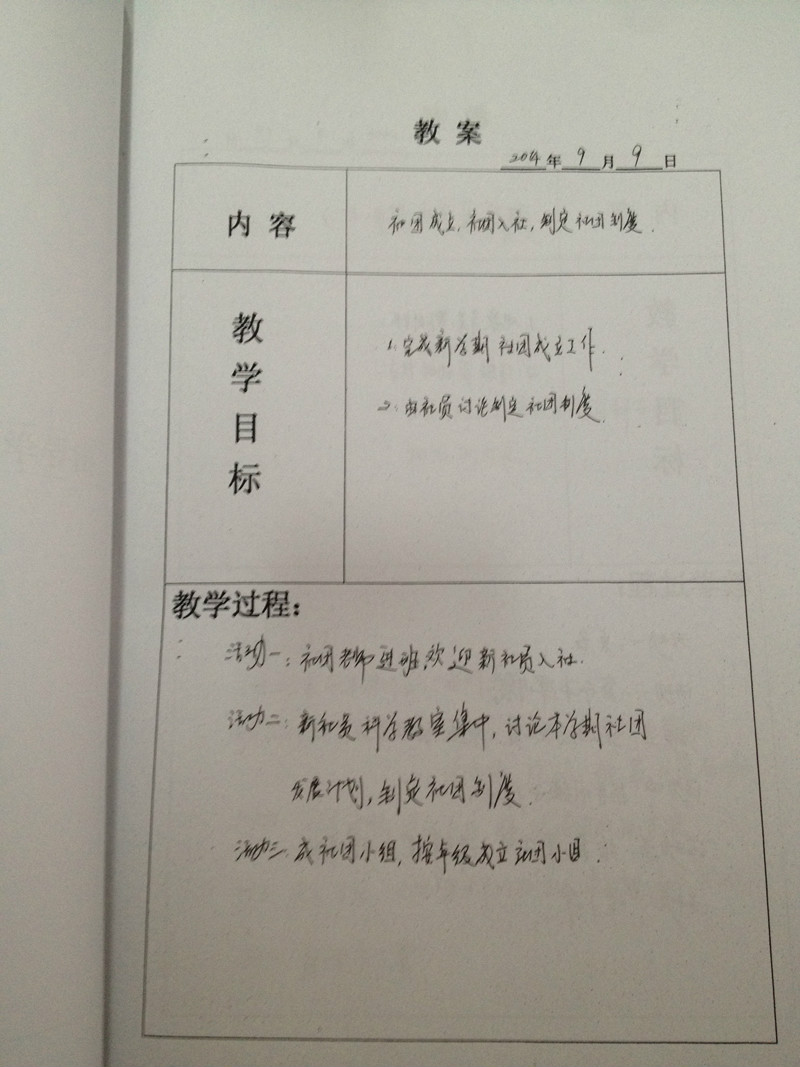 教案
2014年9月9日
内容
社团成立,社团入社,制定社团制度.
教学目标
1.完成新学期社团成立工作.
2.由社员讨论制定社团制度.
教学过程:
活动一:社团老师进班,欢迎新社员入社.
活动二:新社员科学教室集中,讨论本学期社团
发展计划,制定社团制度.
活动三:成社团小组,按年级成立社团小目.